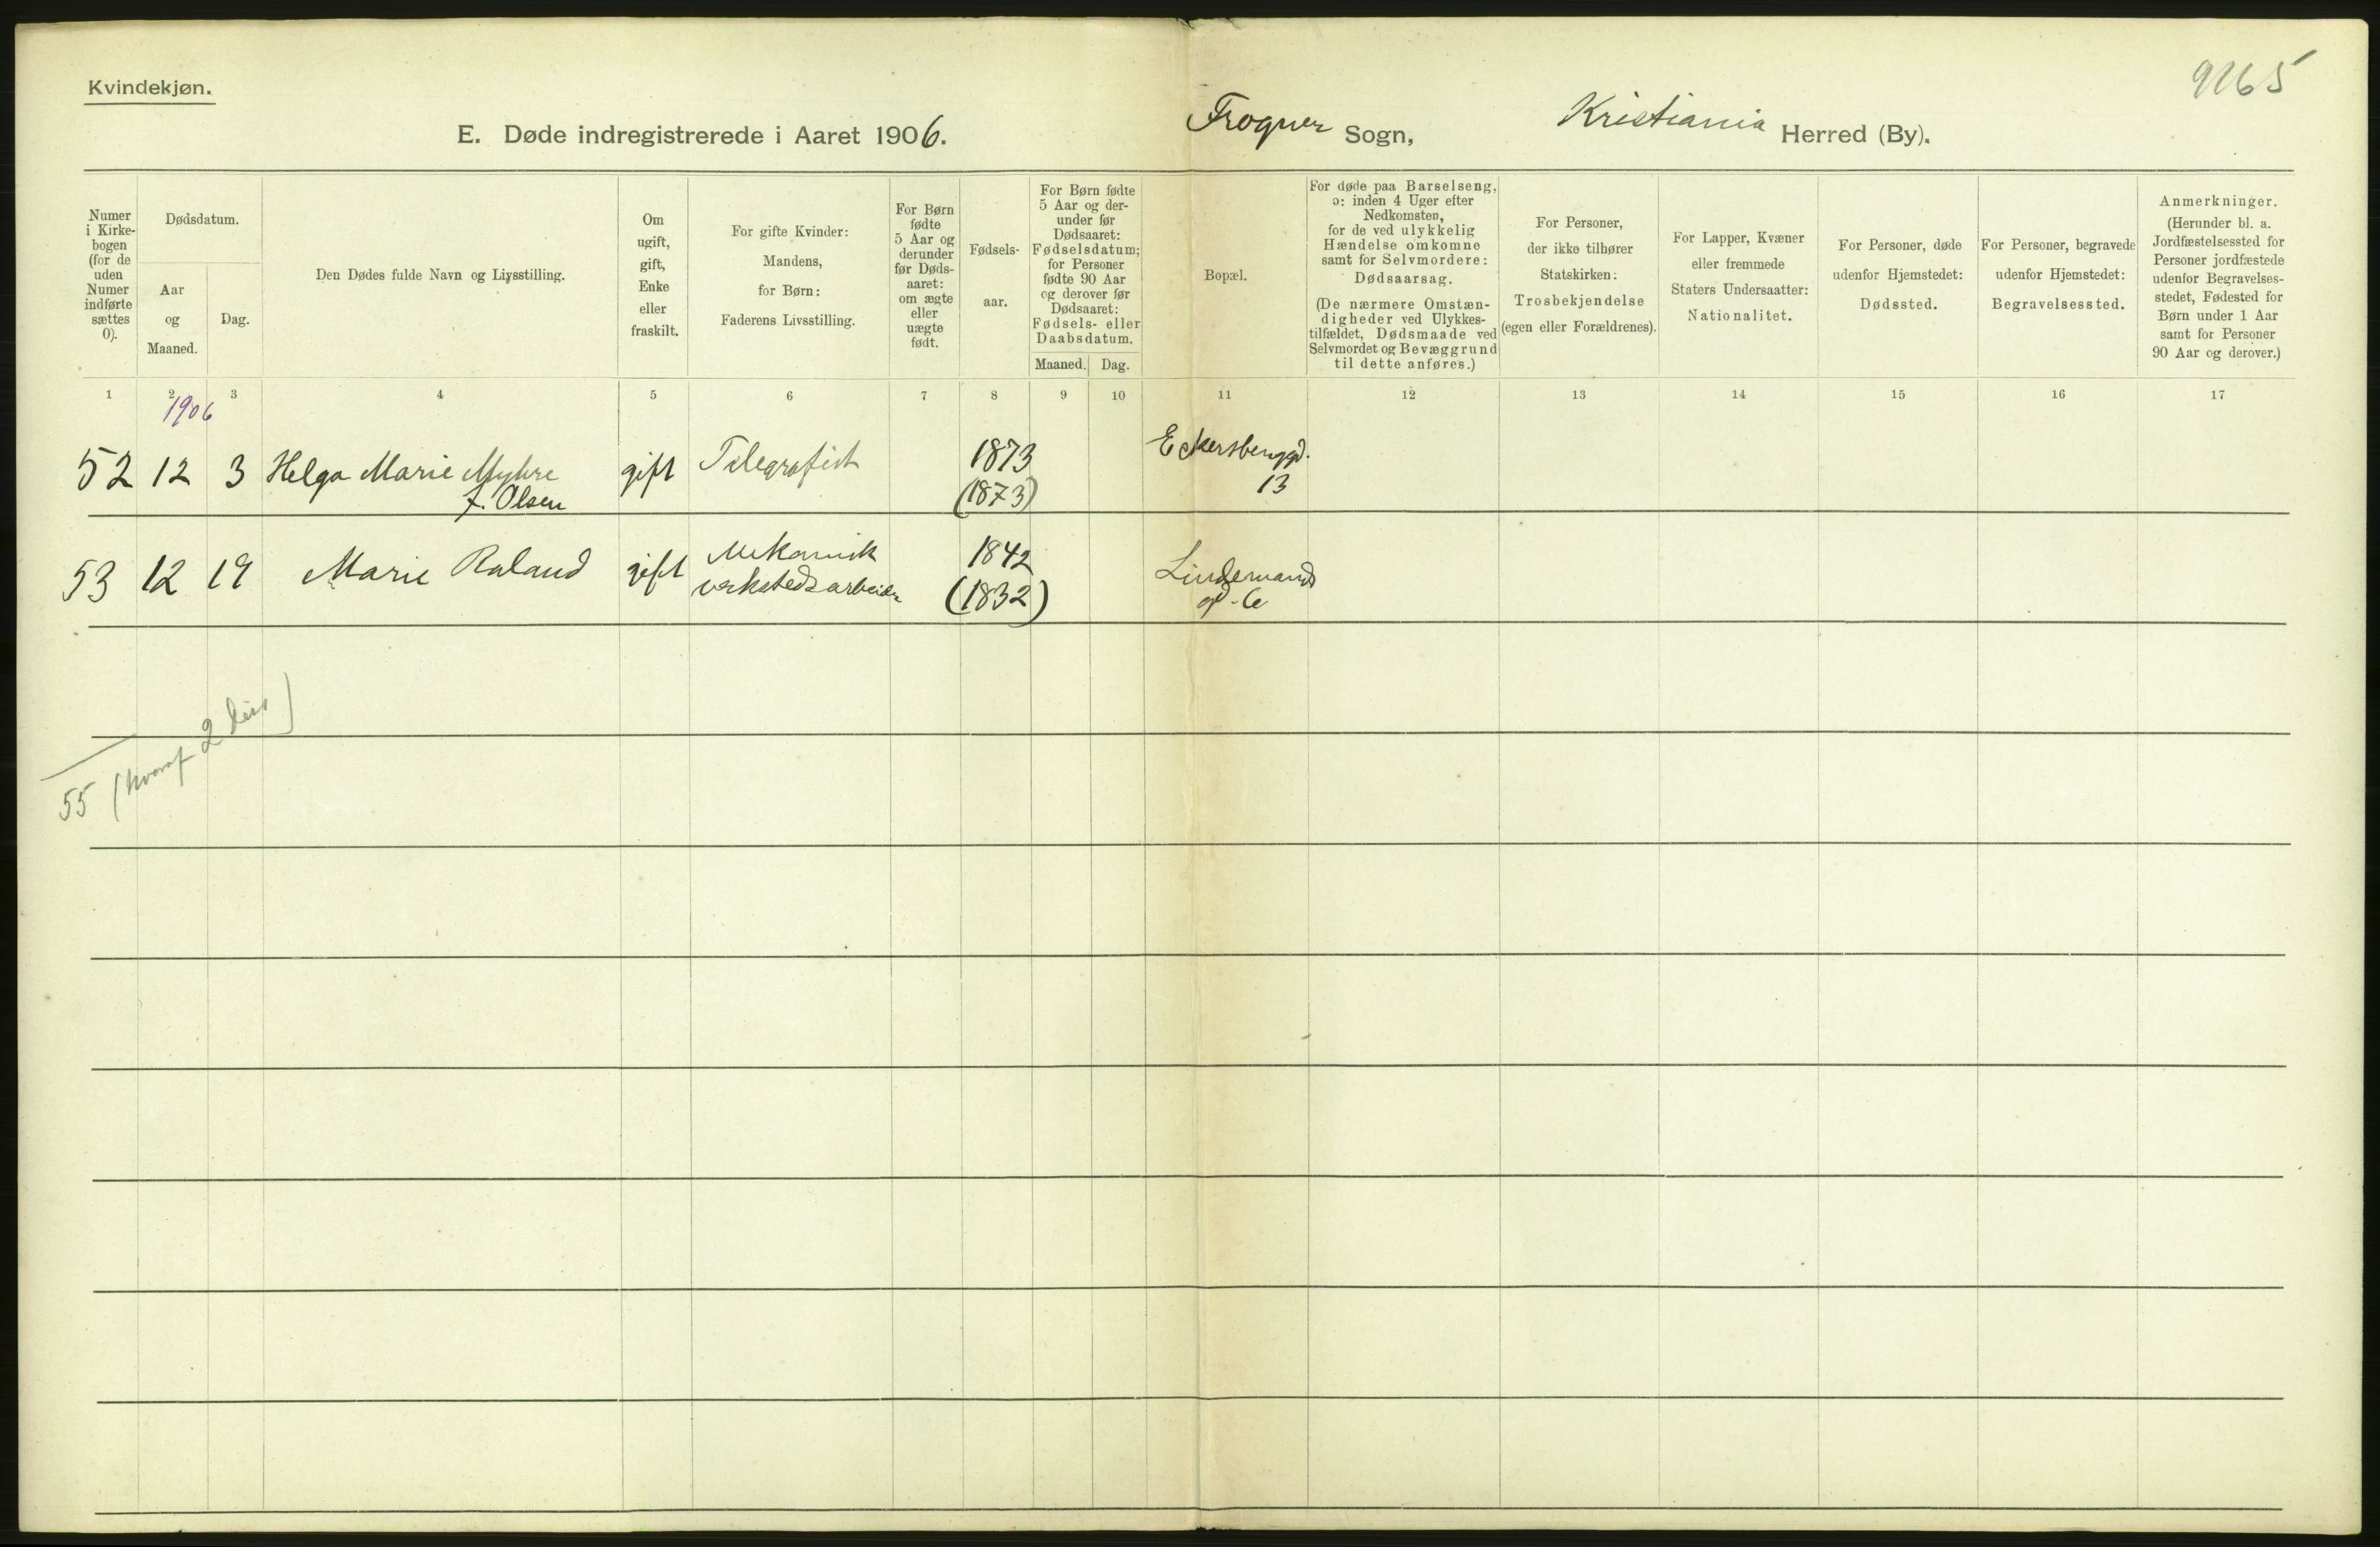 Kvindekjøn.
9265
E. Døde indregistrerede i Aaret 1906.
Frogner Sogn, Kristiania Herred (By).
Numer
i Kirke-
bogen
(for de
uden
Numer
indførte
sættes
0).
Dødsdatum.
Aar
og
Maaned.
Dag.
Den Dødes fulde Navn og Livsstilling.
Om
ugift,
gift,
Enke
eller
fraskilt.
For gifte Kvinder:
Mandens,
for Børn:
Faderens Livsstilling.
For Børn
fødte
5 Aar og
derunder
før Døds-
aaret:
om ægte
eller
uægte
født.
Fødsels-
aar.
For Børn fødte
5 Aar og der-
under før
Dødsaaret:
Fødselsdatum;
for Personer
fødte 90 Aar
og derover før
Dødsaaret:
Fødsels- eller
Daabsdatum.
Maaned. Dag.
Bopæl.
For døde paa Barselseng,
ɔ: inden 4 Uger efter
Nedkomsten,
for de ved ulykkelig
Hændelse omkomne
samt for Selvmordere:
Dødsaarsag.
(De nærmere Omstæn-
digheder ved Ulykkes-
tilfældet, Dødsmaade ved
Selvmordet og Bevæggrund
til dette anføres.)
For Personer,
der ikke tilhører
Statskirken:
Trosbekjendelse
(egen eller Forældrenes).
For Lapper, Kvæner
eller fremmede
Staters Undersaatter:
Nationalitet.
For Personer, døde
udenfor Hjemstedet:
Dødssted.
For Personer, begravede
udenfor Hjemstedet:
Begravelsessted.
Anmerkninger.
(Herunder bl. a.
Jordfæstelsessted for
Personer jordfæstede
udenfor Begravelses-
stedet, Fødested for
Børn under 1 Aar
samt for Personer
90 Aar og derover.)
1 2 3 4 5 6 7 8 9 10 11 12 13 14 15 16 17
1906
52 12 3 Helga Marie Myhre gift Telegrafist 1873 Eckersberggd.
f. Olsen (1873) 13
53 12 19 Marie Raland gift Mekanisk 1842 Lindemands
verkstedsarbeider (1832) gd. 6
55 (hvoraf 2 )